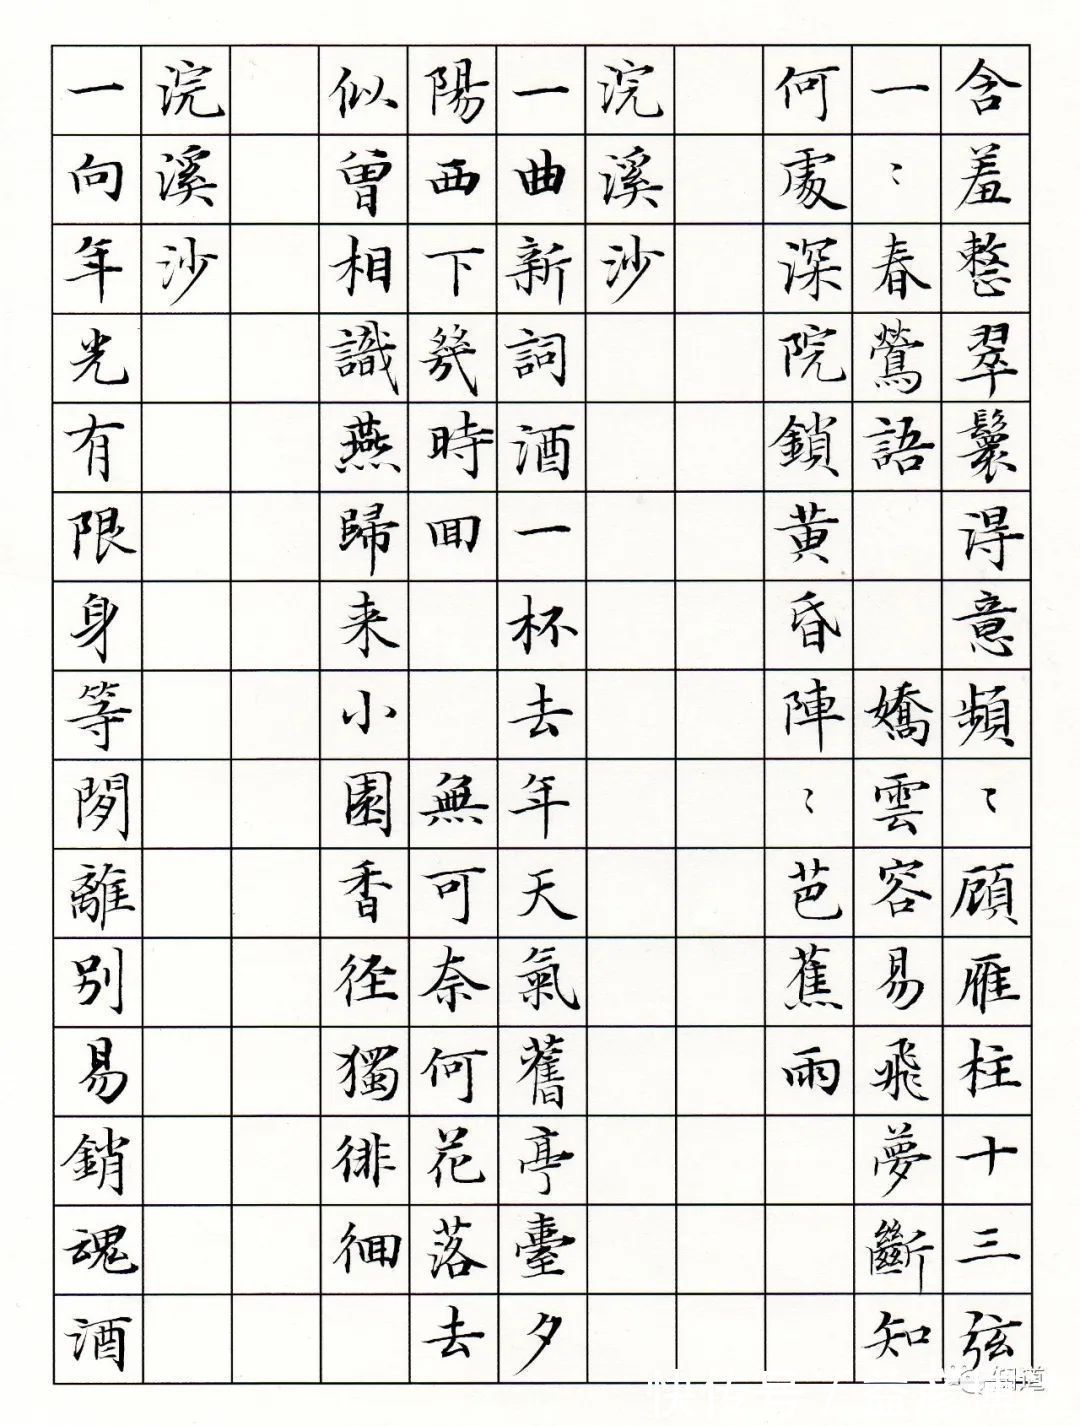 含羞整翠鬟得意頻〻顧雁柱十三弦
一〻春鶯語 嬌雲容易飛夢斷知
何處深院鎖黃昏陣〻芭蕉雨
浣溪沙
一曲新詞酒一杯去年天氣舊亭臺夕
陽西下幾時囬 無可奈何花落去
似曾相識燕歸来小園香徑獨徘徊
浣溪沙
一向年光有限身等閑離別易銷魂酒